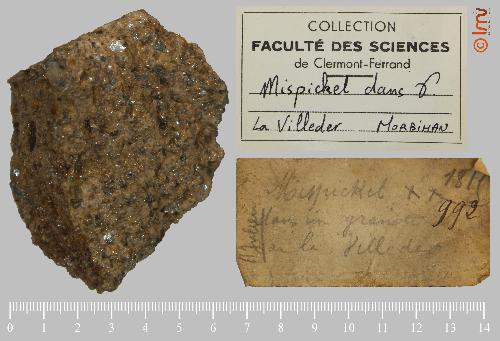 COLLECTION
FACULTÉ DES SCIENCES
de Clermont-Ferrand
Mispickel dans γ.
La Villeder MORBIHAN
Mispickel
992
dans un granite
de la Villeder
0 1 2 3 4 5 6 7 8 9 10 11 12 13 14
© lmv